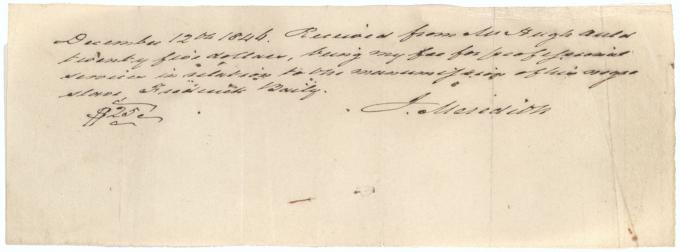 December 12th 1846. Received from Mr Hugh Auld
twenty five dollars, being my fee for professional
service in relation to the manumission of his negro
slave, Fredrick Baily.
$25. J. Meredith